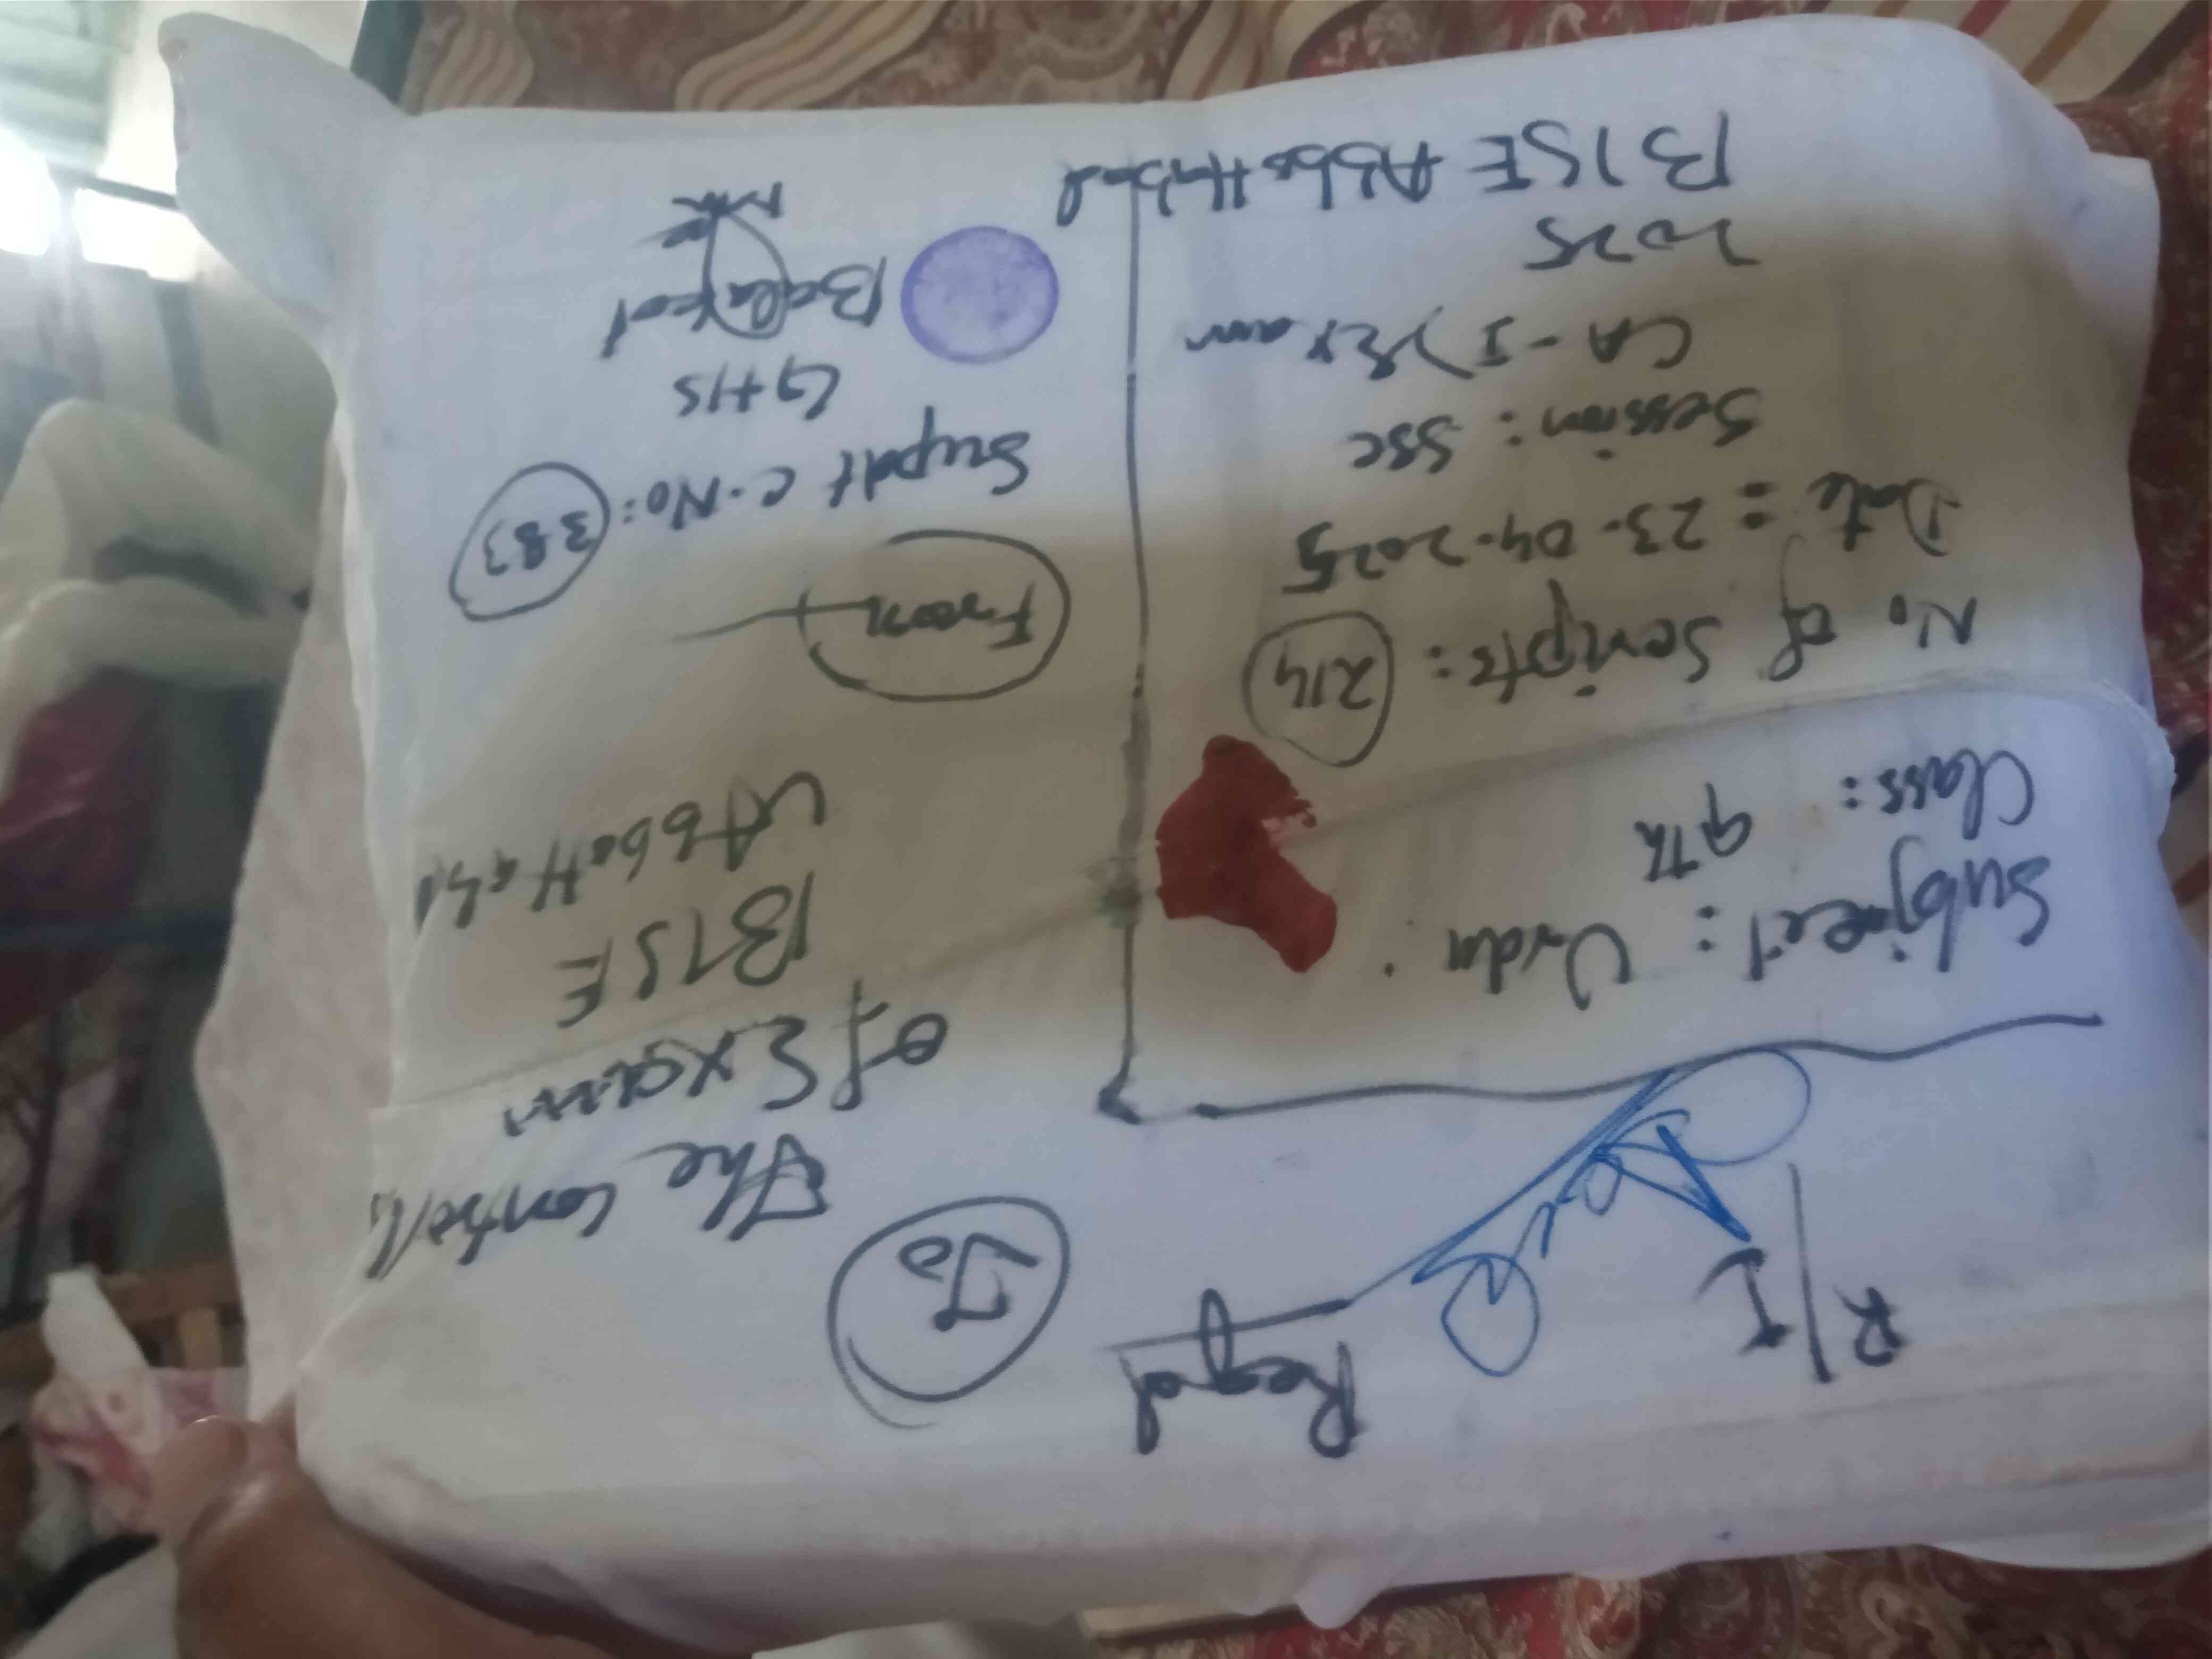 R/I
Regd
Subject: Urdu.
Class: 9th
No of Scripts: 214
Date = 23-04-2025
Session: SSC
(A-I) Exam
2025
BISE AbboHabad
To
The Controll
of Exam
BISE
AbboHabd
From
Supdt C.No: 383
GHS
Balakot